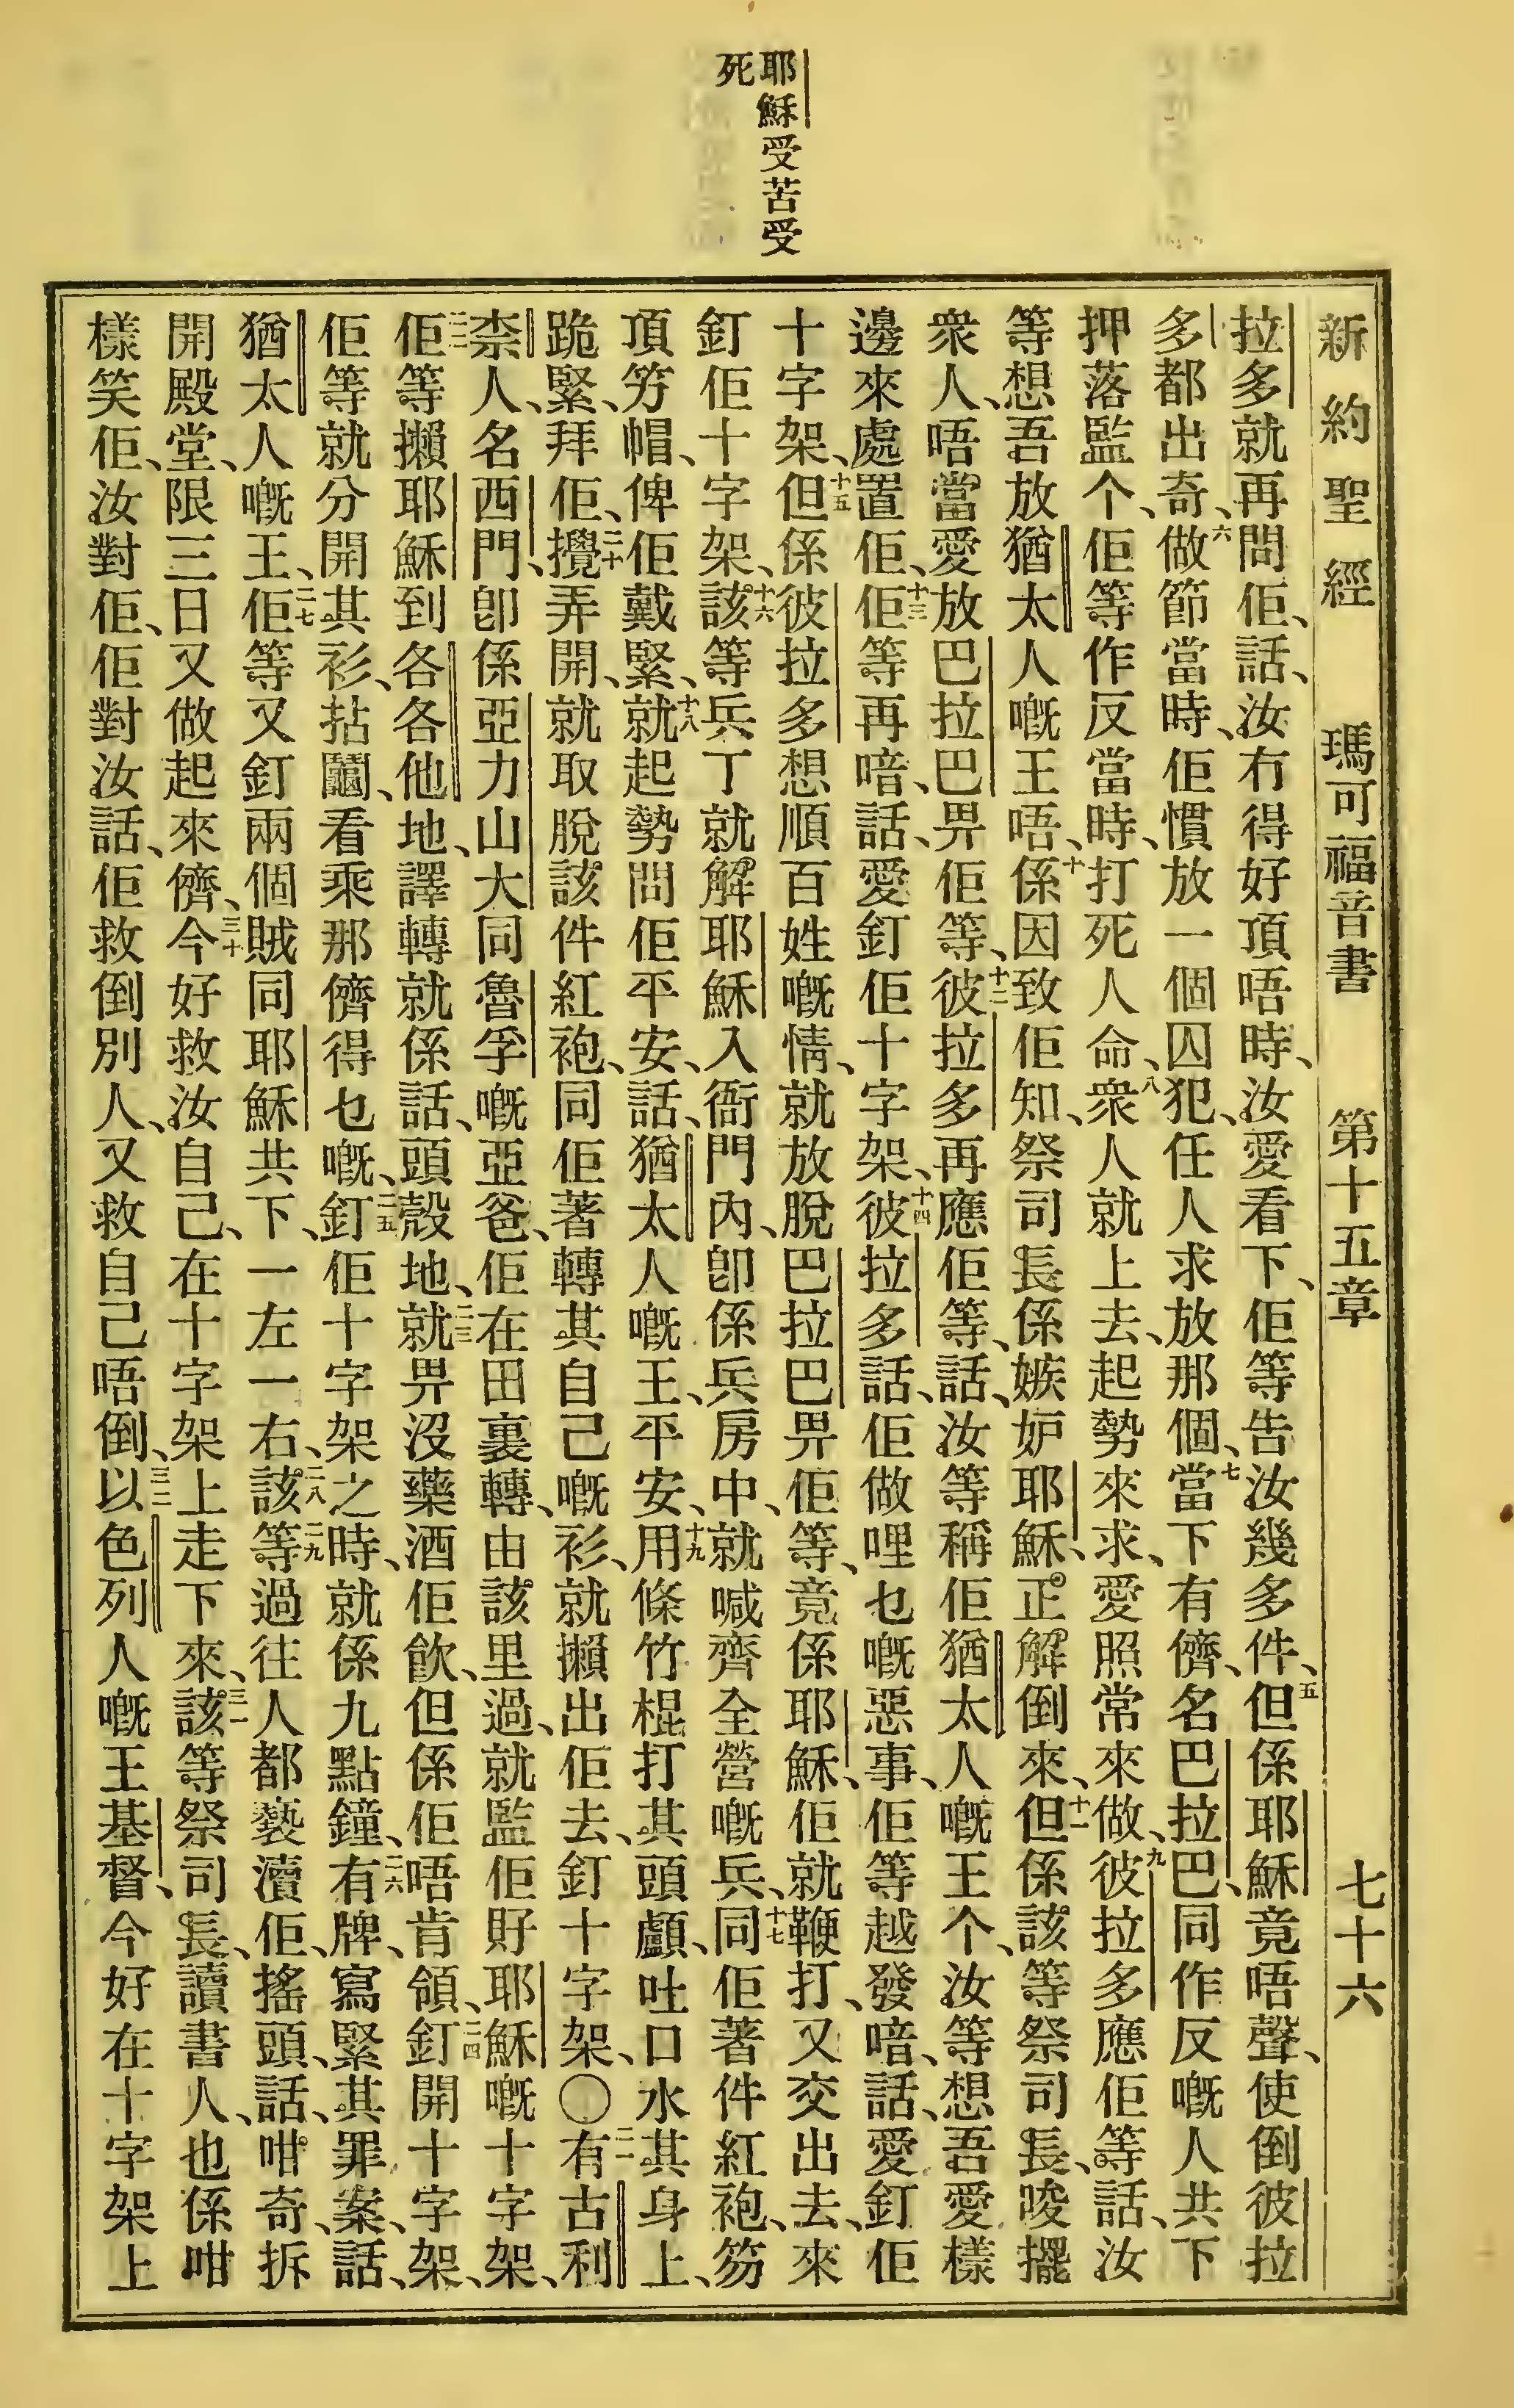 耶穌受苦受
死
新約聖經 瑪可福音書 第十五章 七十六
拉多就再問佢、話、汝冇得好項唔時、汝愛看下、佢等告汝幾多件、五但係耶穌竟唔聲、使倒彼拉
多都出奇、六做節當時、佢慣放一個囚犯、任人求放那個、七當下有儕、名巴拉巴、同作反嘅人共下
押落監个、佢等作反當時、打死人命、八衆人就上去、起勢來求、愛照常來做、九彼拉多應佢等話、汝
等想吾放猶太人嘅王唔、十係因致佢知、祭司長係嫉妒耶穌、正解倒來、十一但係該等祭司長、唆擺
衆人、唔當愛放巴拉巴、畀佢等、十二彼拉多再應佢等、話、汝等稱佢猶太人嘅王个、汝等想吾愛樣
邊來處置佢、十三佢等再喑、話、愛釘佢十字架、十四彼拉多話、佢做哩乜嘅惡事、佢等越發喑、話、愛釘佢
十字架、十五但係彼拉多想順百姓嘅情、就放脫巴拉巴畀佢等、竟係耶穌、佢就鞭打、又交出去、來
釘佢十字架、十六該等兵丁就解耶穌入衙門內、卽係兵房中、就喊齊全營嘅兵、十七同佢著件紅袍、笏
項竻帽、俾佢戴緊、十八就起勢問佢平安、話、猶太人嘅王、平安、十九用條竹棍打其頭顱、吐口水其身上、
跪緊、拜佢、二十攪弄開、就取脫該件紅袍、同佢著轉其自己嘅衫、就攋出佢去、釘十字架、〇二一有古利
柰人、名西門、卽係亞力山大同魯孚嘅亞爸、佢在田裏轉、由該里過、就監佢𢫦耶穌嘅十字架、
二二佢等攋耶穌到各各他地、譯轉就係話、頭殼地、二三就畀沒藥酒佢飲、但係佢唔肯領、二四釘開十字架、
佢等就分開其衫、拈鬮、看乘那儕得乜嘅、二五釘佢十字架之時、就係九點鐘、二六有牌、寫緊其罪案、話、
猶太人嘅王、二七佢等又釘兩個賊同耶穌共下、一左一右、二八該二九等過往人都褻瀆佢、搖頭、話、咁奇、拆
開殿堂、限三日又做起來儕、三十今好救汝自己、在十字架上走下來、三一該等祭司長、讀書人、也係咁
樣笑佢、汝對佢、佢對汝話、佢救倒別人、又救自己唔倒、三二以色列人嘅王基督、今好在十字架上